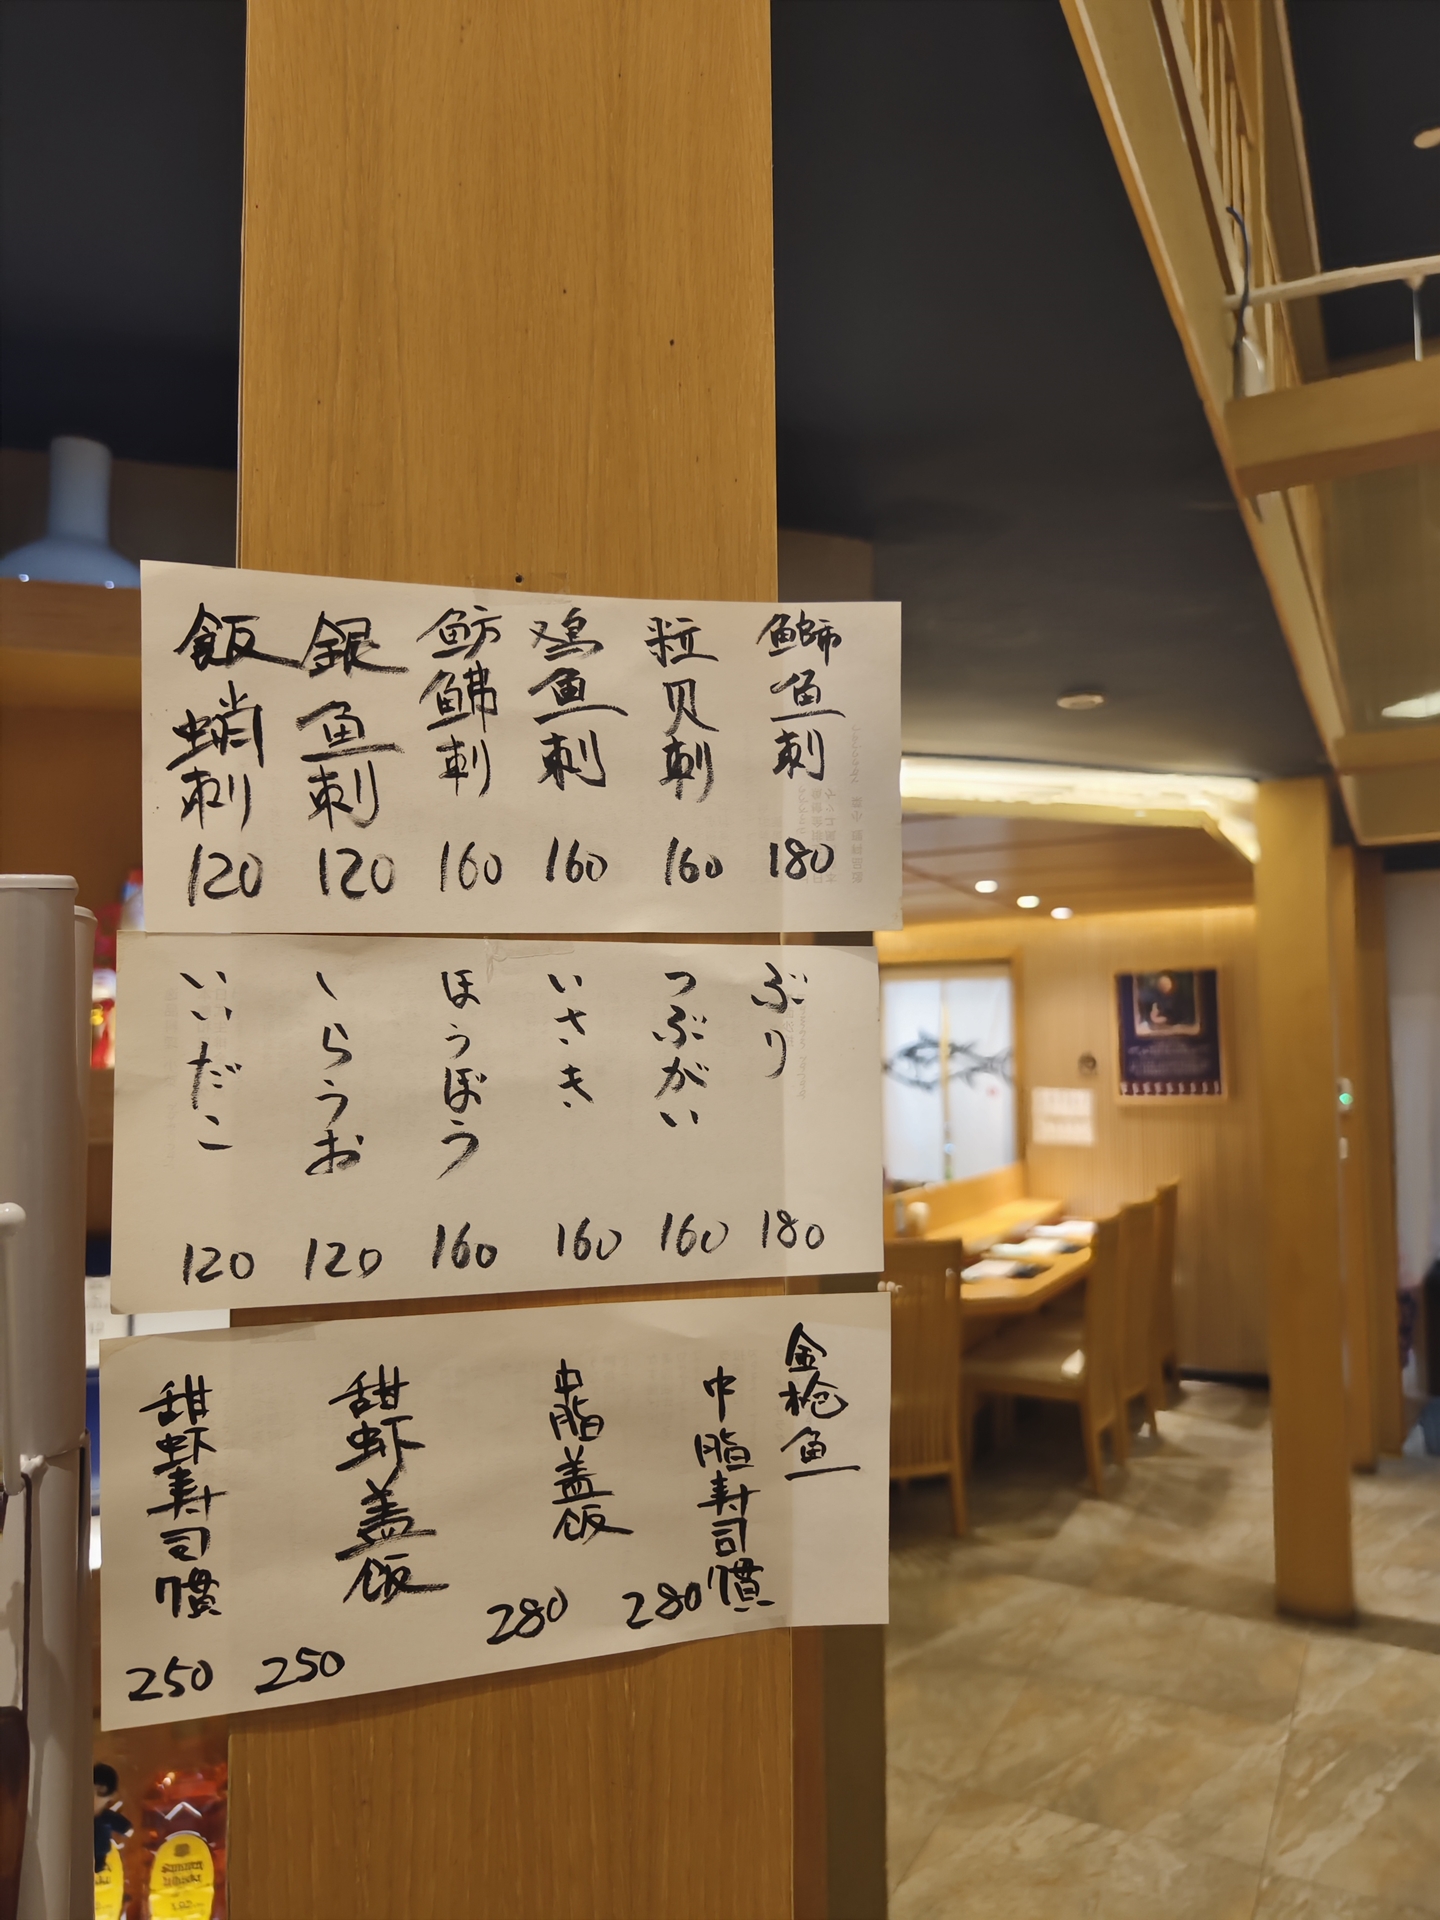 鰤鱼刺
180
粒贝刺
160
鸡鱼刺
160
鲂鮄刺
160
銀鱼刺
120
飯蛸刺
120
ぶり
180
つぶがい
160
いさき
160
ほうぼう
160
しらうお
120
いいだこ
120
金枪鱼
中脂寿司慣
280
中脂盖饭
280
甜虾盖饭
250
甜虾寿司慣
250